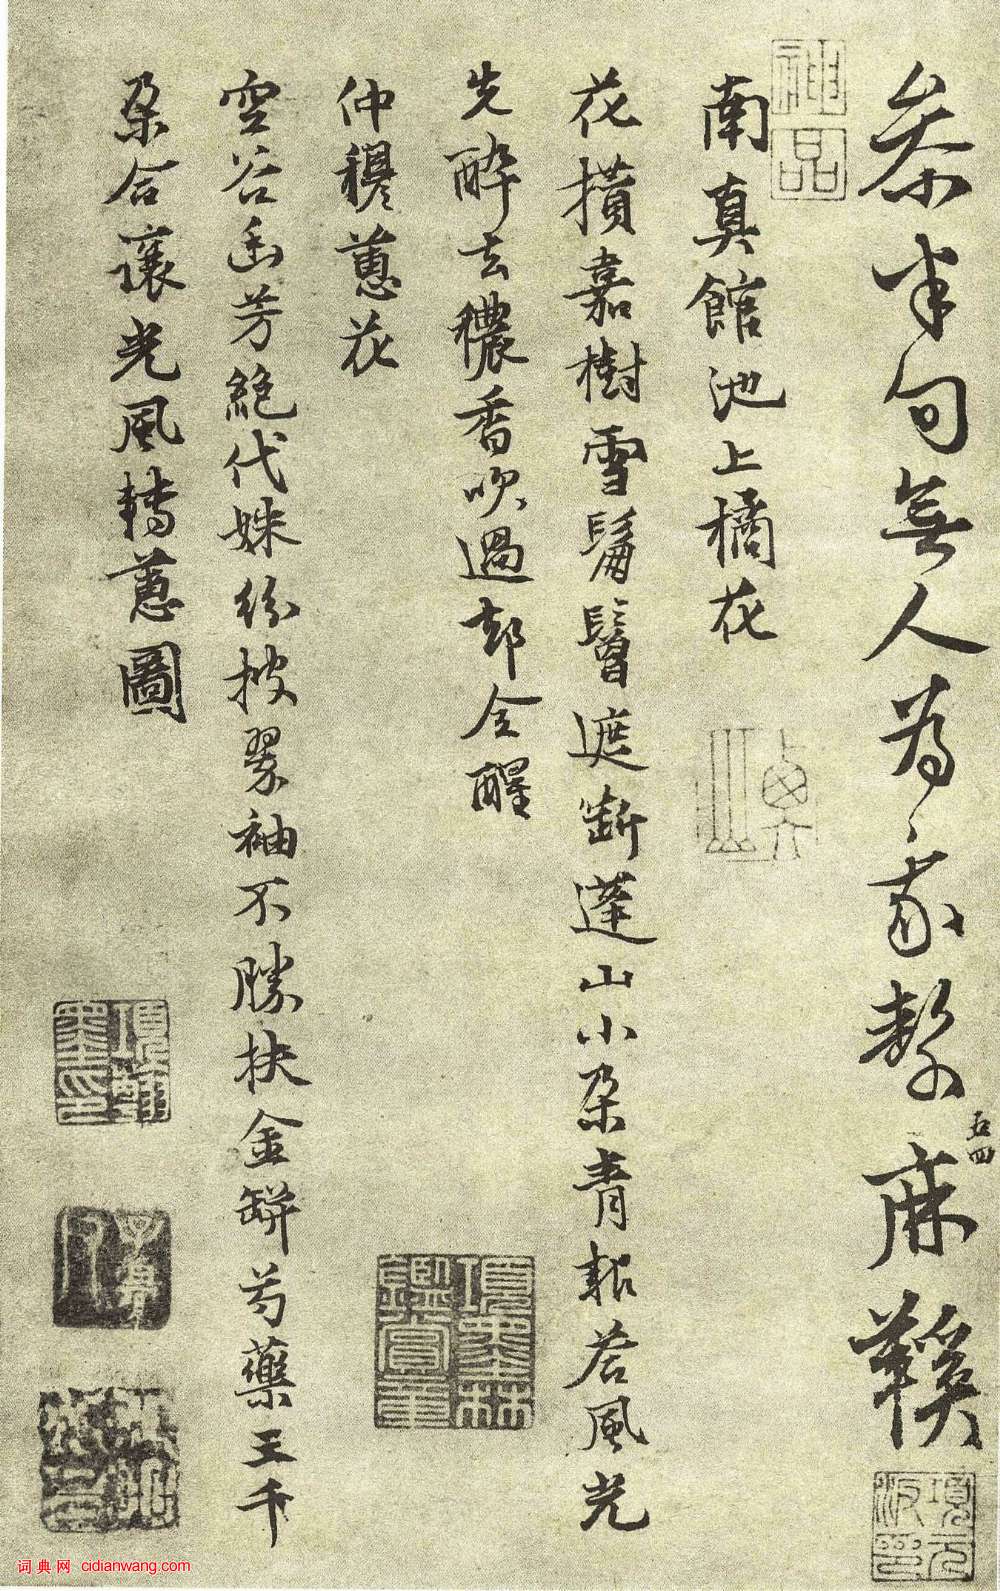 叅半句無人為我擊麻鞵
五四
南真館池上橘花
花攢嘉樹雪鬅鬙遮斷蓬山小朵青軺茖風光
先醉去穠香吹過却令醒
仲穆蕙花
空谷幽芳絕代姝紛披翠袖不勝扶金缾芍藥三千
朵合讓光風轉蕙圖
神品
項墨林鑑賞章
項元汴印
子京
詞典网 cidianwang.com